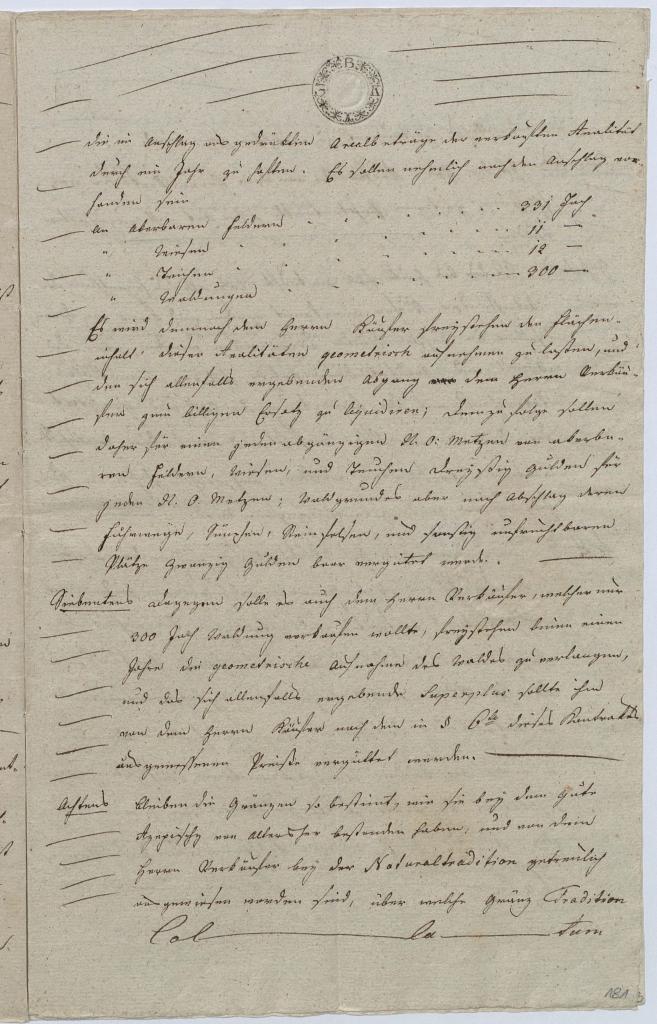 die im Anschlag aus gedrückten Arealbeträge der verkauften Realität
durch ein Jahr zu haften. Es sollen nehmlich nach dem Anschlag vor-
handen sein
An Akerbaren Feldern " " 331 Joch
" Wiesen " 11 —
" Teichen " 12 —
" Waldungen 300 —
Es wird demnach dem Herrn Käufer freystehen den Flächen-
inhalt dieser Realitäten geometrisch aufnehmen zu lassen, und
den sich allenfalls ergebenden Abgang dem Herrn Verkäu-
fer zum billigen Ersatz zu liquidiren; dem zu folge sollen
daher für einen jeden abgängigen N. O. Metzen von akerba-
ren Feldern, Wiesen, und Teuchen Dreyßig Gulden für
jeden N. O. Metzen; Waldgrundes aber nach Abschlag deren
Fuhrweege, Sümpfen, Steinfelsen, und sonstig unfruchtbaren
Plätze Zwanzig Gulden baar vergütet werde.
Siebentens dagegen solle es auch dem Herrn Verkäufer, welcher nur
300 Joch Waldung verkaufen wollte, freystehen binnen einem
Jahre die geometrische Aufnahme des Waldes zu verlangen,
und das sich allenfalls ergebende Superplus sollte ihm
von dem Herrn Käufer nach dem in § 6te dieses Kontrakts
ausgemessenen Preiße vergüttet werden.
Achtens bleiben die Gränzen so bestimt, wie sie bey dem Gute
von Altersher bestanden haben, und von dem
Herrn Verkäufer bey der Naturaltradition getreulich
ausgewiesen worden sind, über welche Gränz Tradition
Col la tum
181